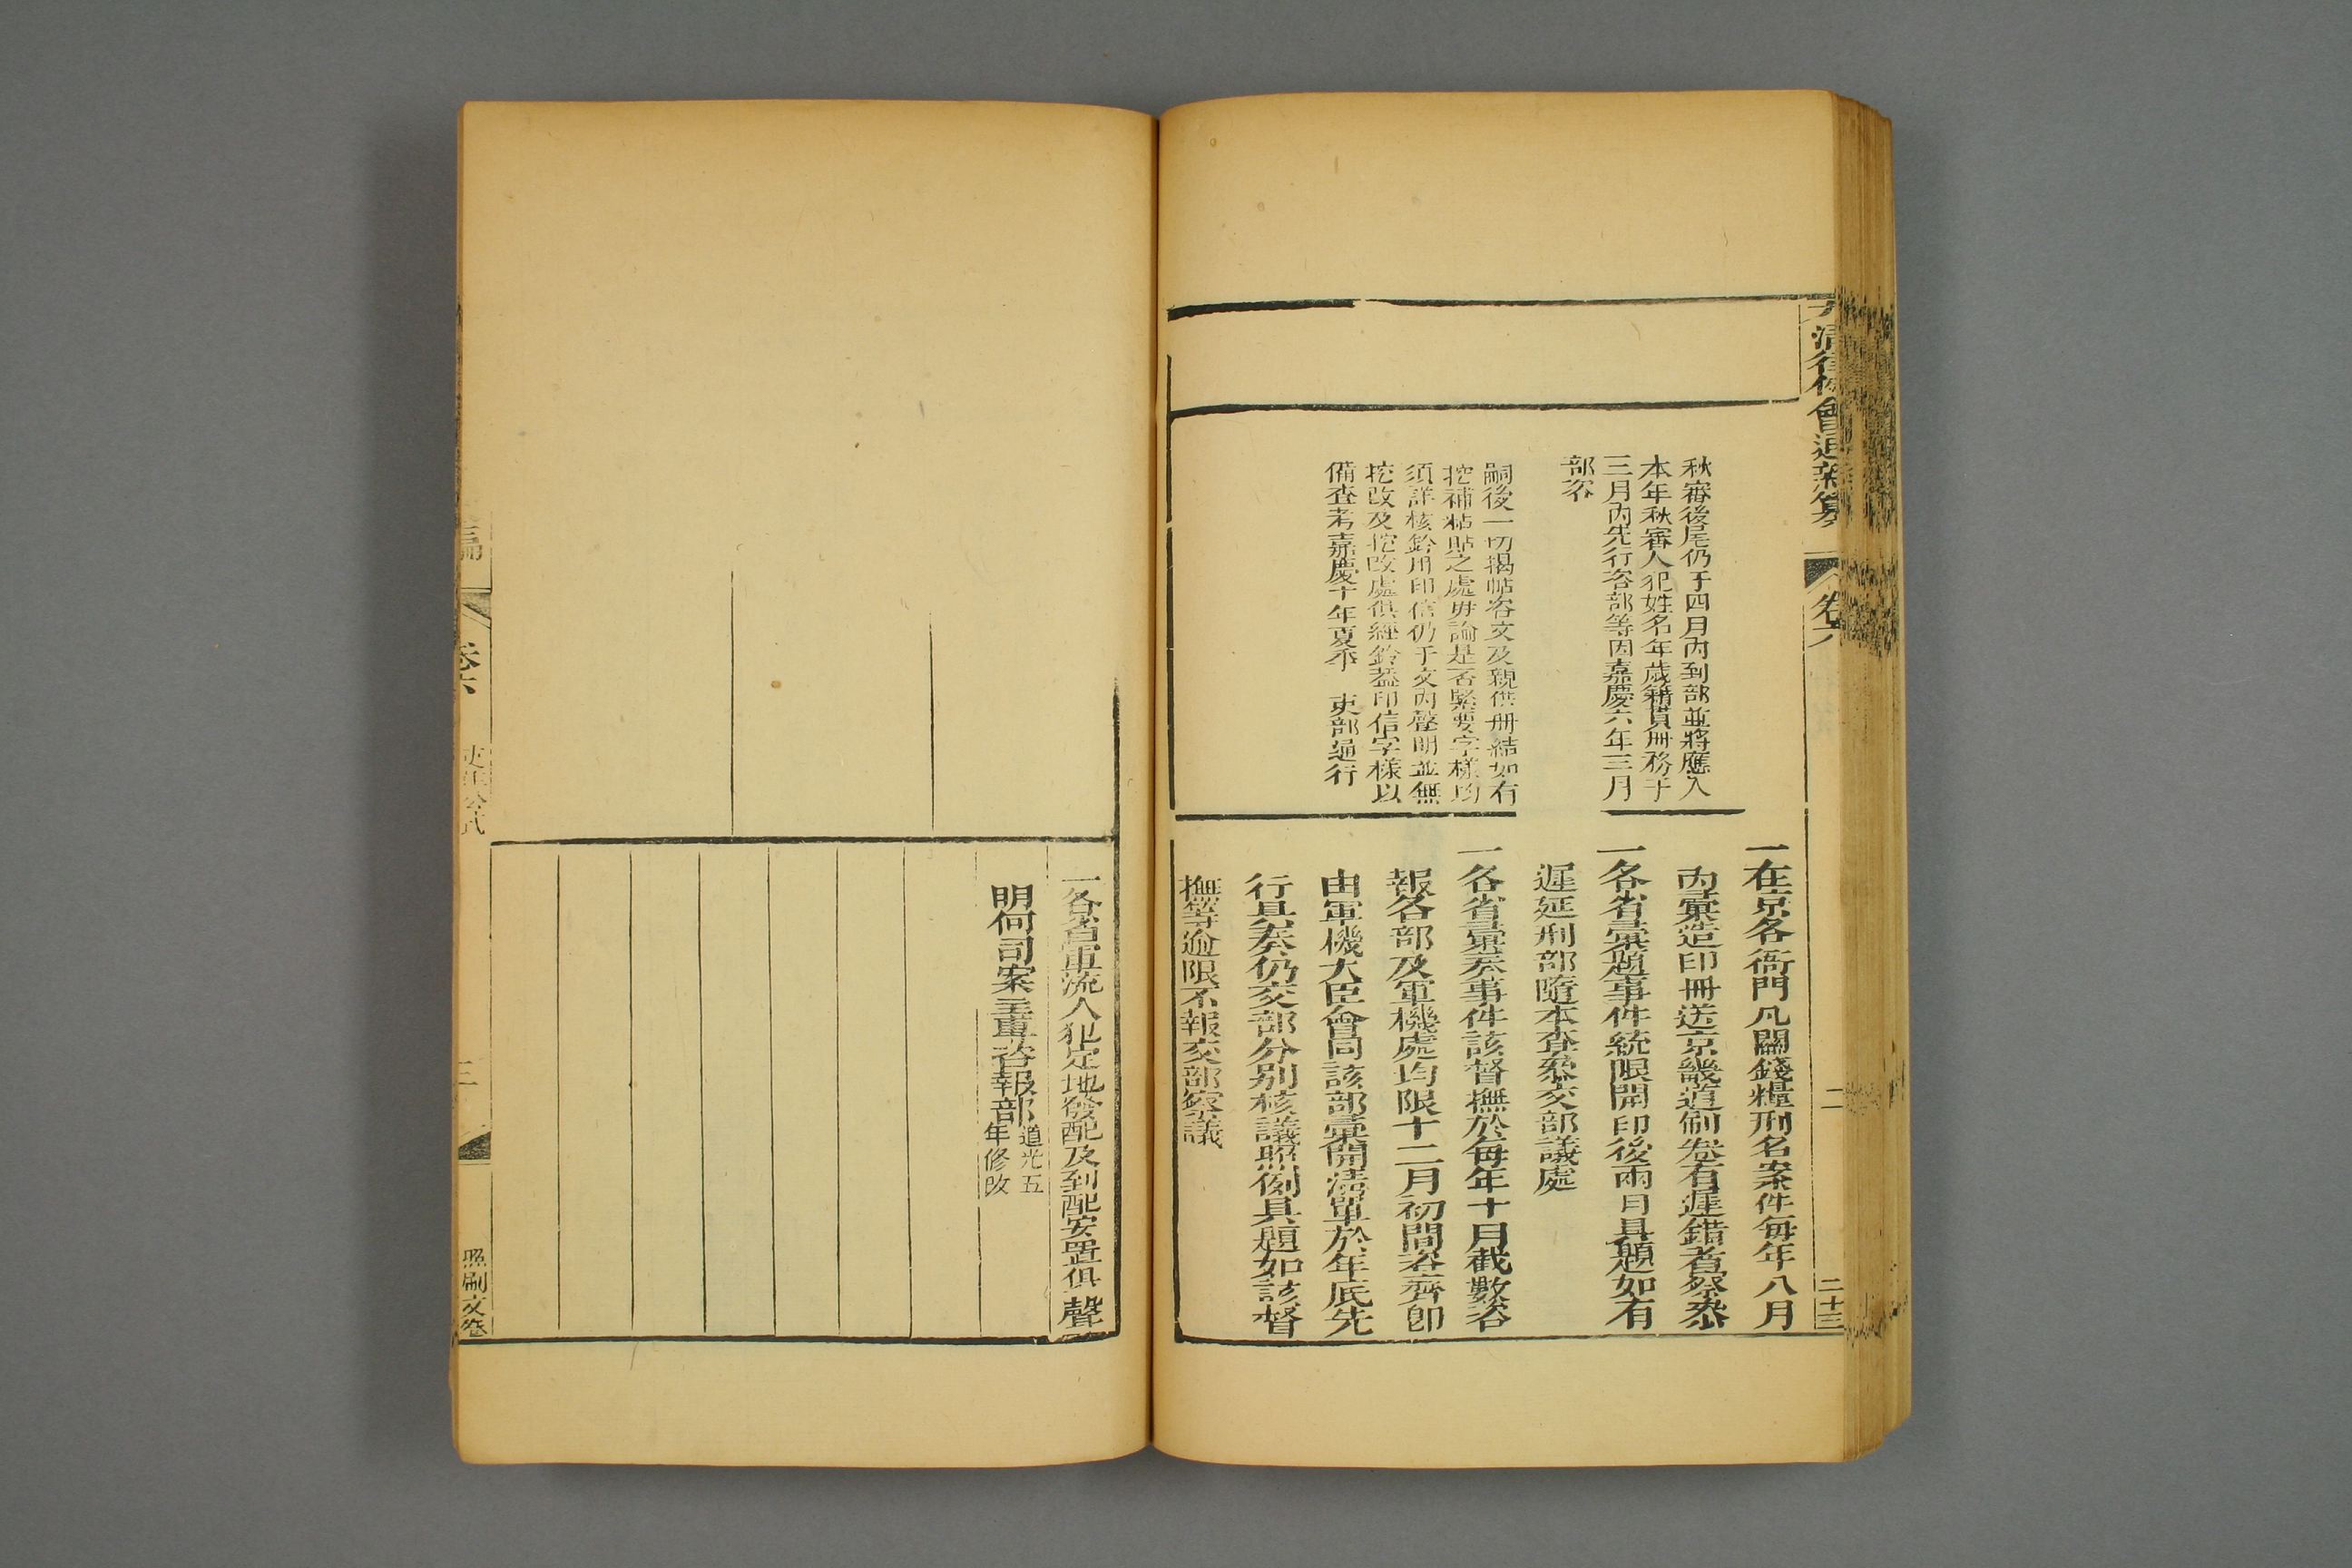 大清律例會通新纂
卷六
二
二十三
秋審後尾仍于四月內到部並將應入
本年秋審人犯姓名年歲籍貫冊務于
三月內先行咨部等因嘉慶六年三月
部咨
嗣後一切揭帖咨文及親供冊結如有
挖補粘貼之處毋論是否緊要字樣均
須詳核鈐用印信仍于文內聲明並無
挖改及挖改處俱經鈐蓋印信字樣以
備查考嘉慶十年夏季 吏部通行
一在京各衙門凡關錢糧刑名案件每年八月
內彙造印冊送京畿道刷卷有遲錯者察叅
一各省彙題事件統限開印後兩月具題如有
遲延刑部隨本查叅交部議處
一各省彙奏事件該督撫於每年十月截數咨
報各部及軍機處均限十二月初間咨齊卽
由軍機大臣會同該部彙開清單於年底先
行具奏仍交部分別核議照例具題如該督
撫等逾限不報交部察議
一各省軍流人犯定地發配及到配安置俱聲
明何司案呈專咨報部道光五
年修改
編
卷六
吏律公式
三
照刷文卷